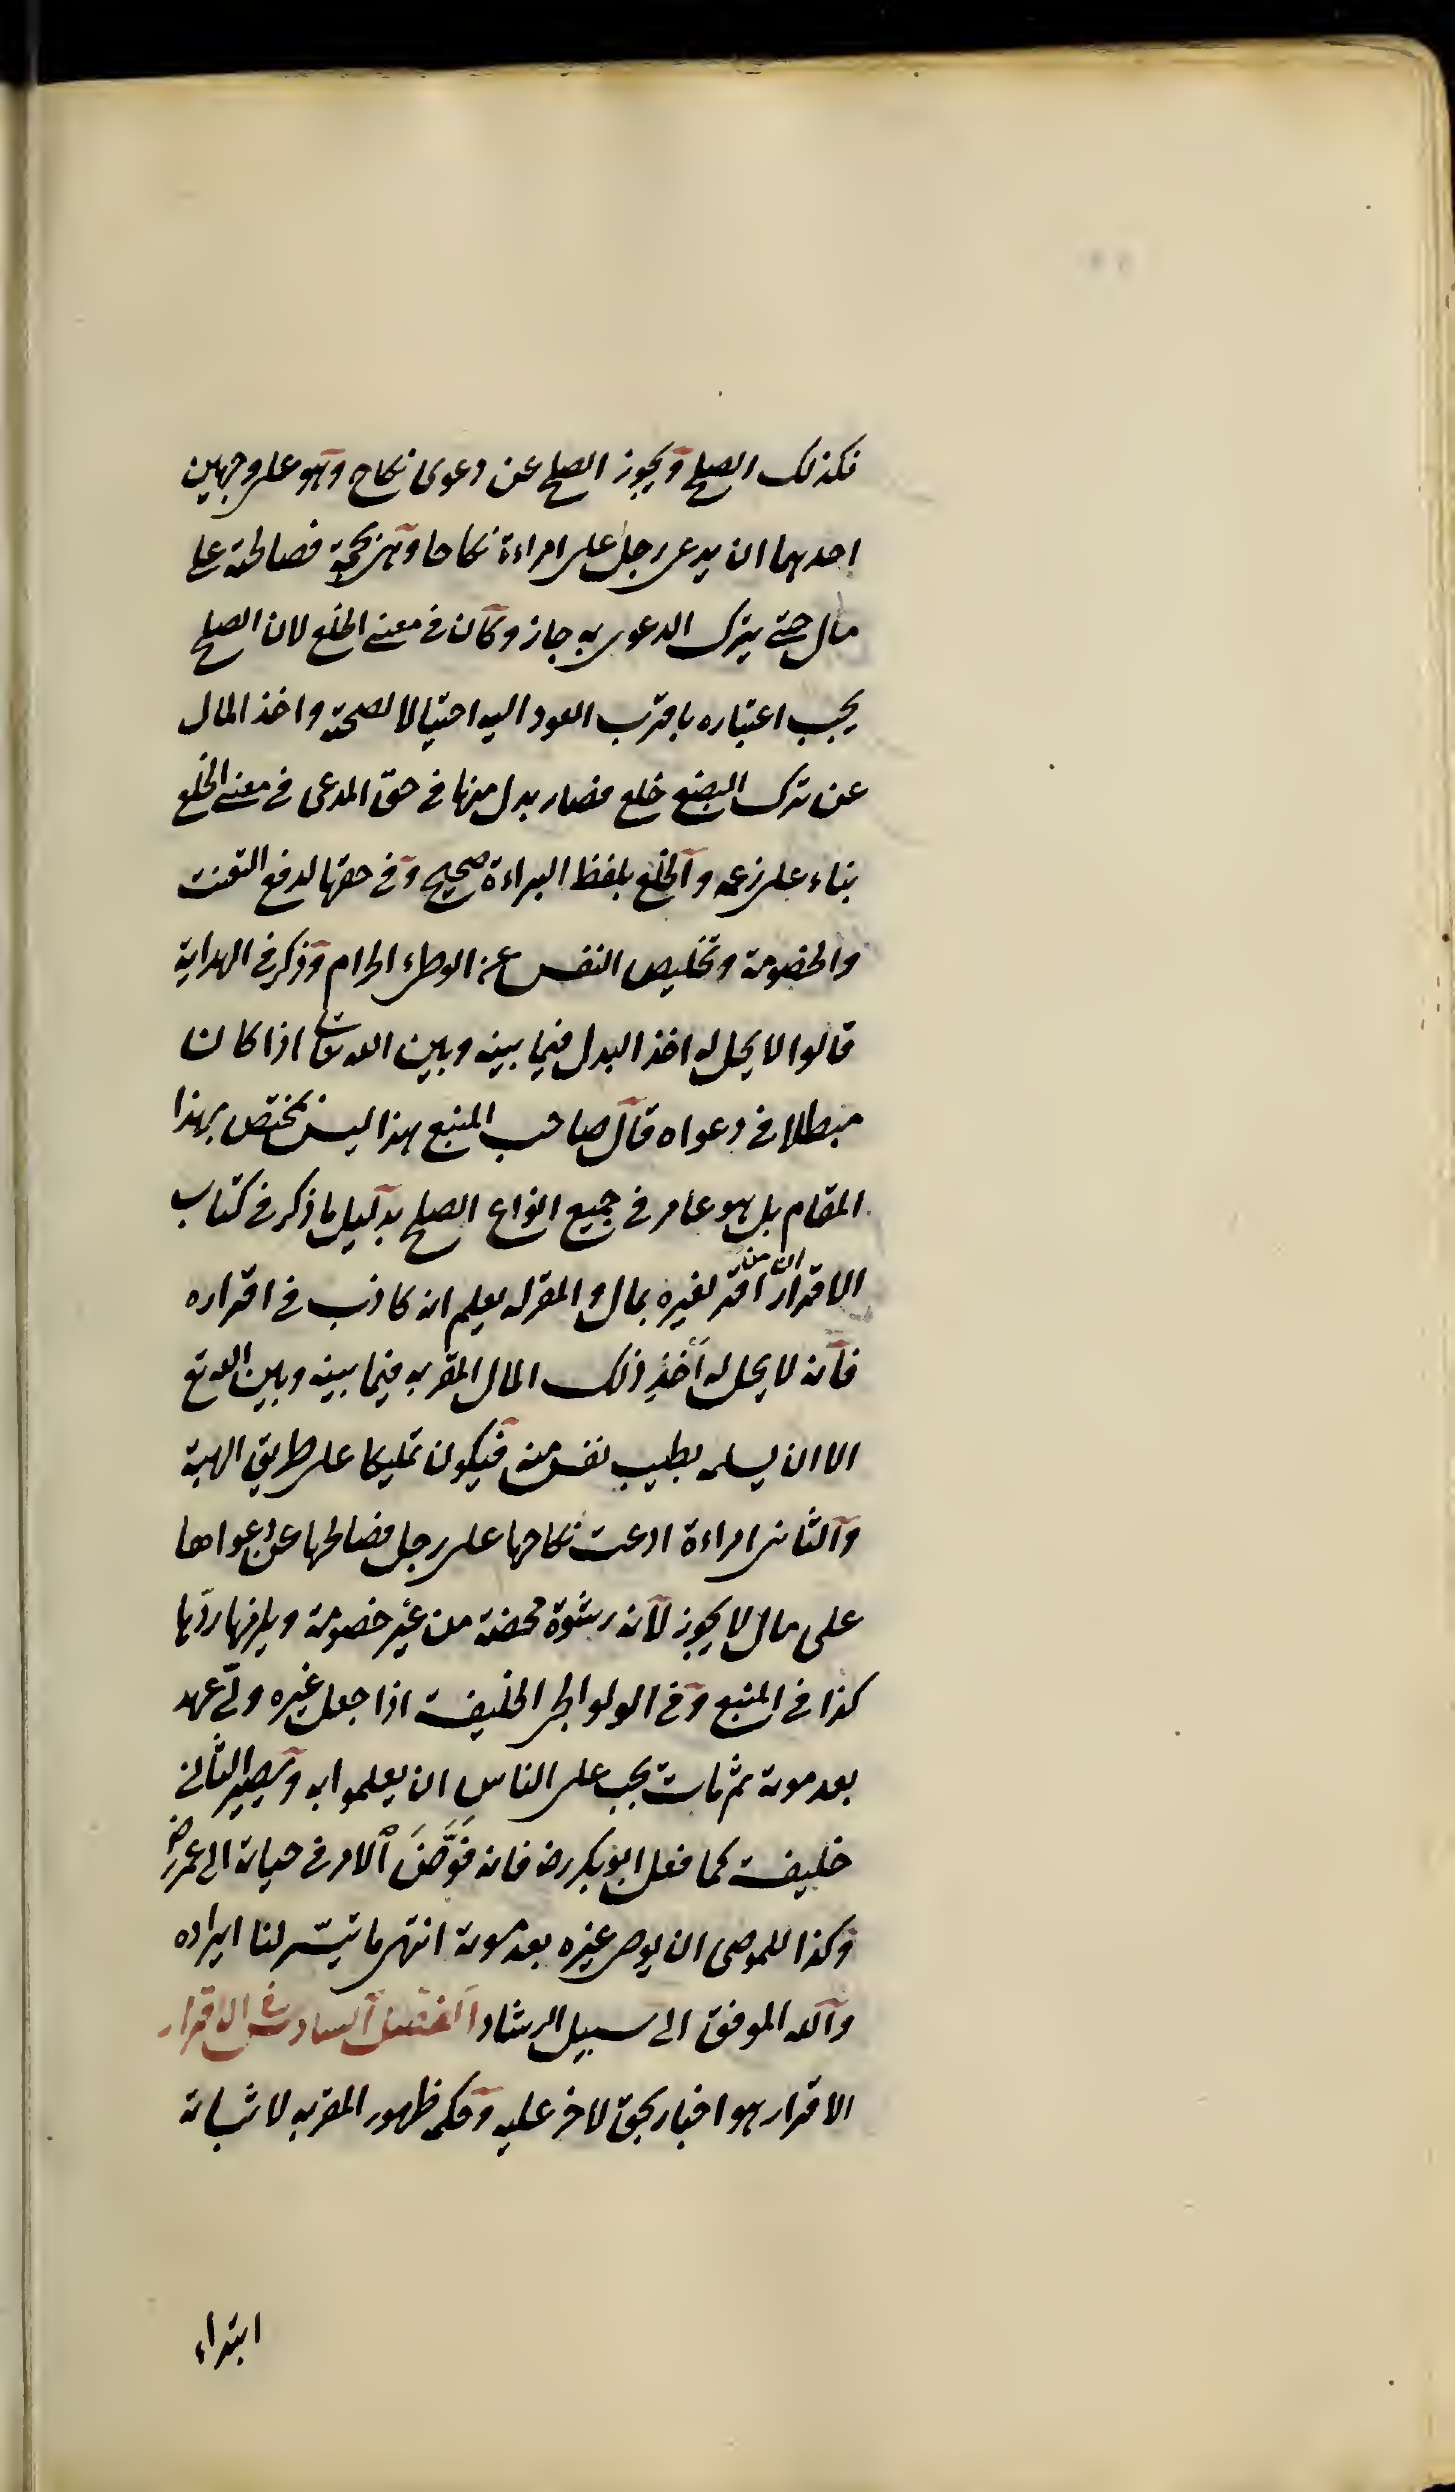 فكذلك الصلح ويجوز الصلح عن دعوى نكاح وهو على وجهين
احدهما ان يدعى رجل على امراءة نكاحا وهى تجحد فصالحته على
مال حتى يترك الدعوى به جاز وكان فى معنى الخلع لان الصلح
يجب اعتباره باقرب العقود اليه احتيالا لصحته واخذ المال
عن ترك البضع خلع فصار بدل منها فى حق المدعى فى معنى الخلع
بناء على زعمه والخلع بلفظ البراءة صحيح وفى حقها لدفع التعنت
والخصومة وتخليص النفس عن الوطىء الحرام وذكر فى الهداية
قالوا لا يحل له اخذ البدل فيما بينه وبين الله تعالى اذا كان
مبطلا فى دعواه قال صاحب المنبع هذا ليس بمختص بهذا
المقام بل هو عام فى جميع انواع الصلح بدليل ما ذكر فى كتاب
الاقرار ان من اقر لغيره بمال والمقر له يعلم انه كاذب فى اقراره
فانه لا يحل له اَخذِ ذلك المال المقر به فيما بينه وبين الله تع
الا ان يسلمه بطيب نفس منه فيكون تمليكا على طريق الهبة
والثانى امراءة ادعت نكاحها على رجل فصالحها عن دعواها
على مال لا يجوز لانه رشوة محضة من غير خصومة ويلزمها ردّها
كذا فى المنبع وفى الولوالجى الخليفة اذا جعل غيره ولىّ عهد
بعد موته ثم مات يجب على الناس ان يعلموا به ويصير الثانى
خليفة كما فعل ابو بكر رض فانه فَوَّضَ الامر فى حياته الى عمر رض
وكذا للموصى ان يوصى غيره بعد موته انتهى ما تيسّر لنا ايراده
والله الموفق الى سبيل الرشاد الفصل السادس فى الاقرار
الاقرار هو اخبار بحق لاخر عليه وحكمه ظهور المقر به لا ثباته
ابتداء